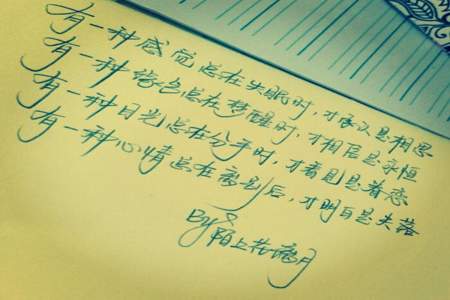 有一种感觉总在失眠时，才承认是相思
有一种缘色总在梦醒时，才相信是永恒
有一种目光总在分手时，才看见是眷恋
有一种心情总在离别后，才明白是失落
By：陌上花满月